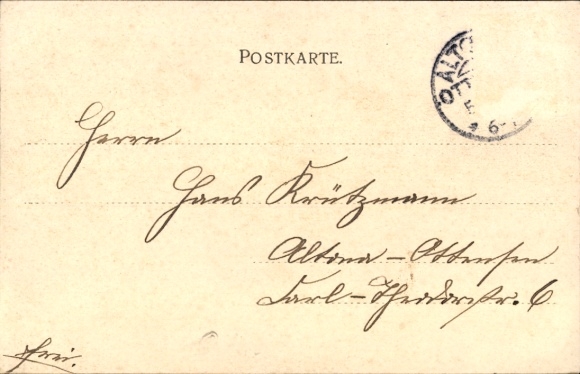 POSTKARTE.
ALTO
6-
Herrn
Hans Krützmann
Altona-Ottensen
Carl-Theodorstr. 6
frei.